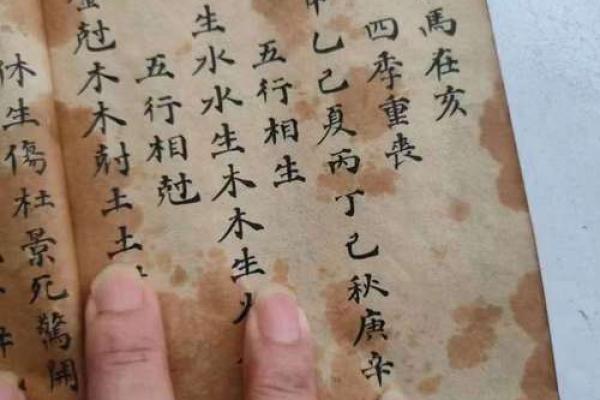 馬在亥
四季重丧
乙己夏丙丁己秋庚辛
五行相生
生水水生木木生火
五行相尅
尅木木尅土土
休生傷杜景死驚開